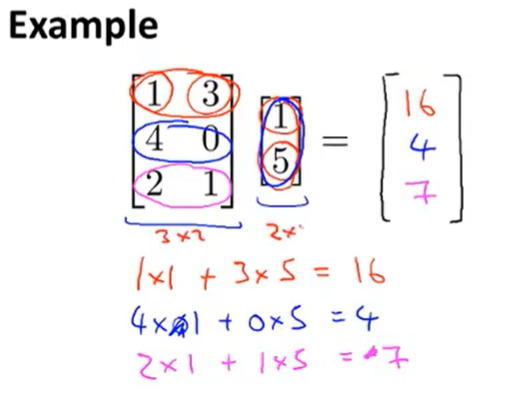 Example
1 3
4 0
2 1
1
5
=
16
4
7
3 x 2
2 x
1 x 1 + 3 x 5 = 16
4 x 1 + 0 x 5 = 4
2 x 1 + 1 x 5 = 7